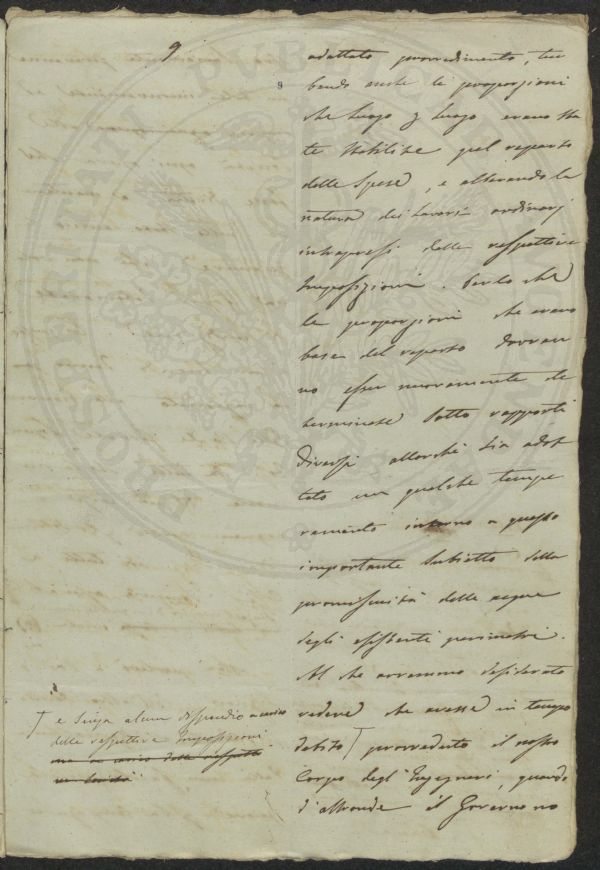 9
9
adattato provvedimento, tur
bando anche le proporzioni
che luogo p luogo erano sta
te stabilite pel reparto
delle Spese, e alterando la
natura dei lavori ordinarj
intrapresi dalle respettive
Imposizioni. Perlo che
le proporzioni che erano
base del reparto dovran
no esser nuovamente de
terminate sotto rapporti
diversi allorchè sia adot
tato un qualche tempe
ramento intorno a questo
importante subietto della
promiscuità delle acque
degli esistenti perimetri.
Al che avremmo desiderato
vedere che avesse in tempo
debito Γ provveduto il nostro
Corpo degl'Ingegneri, quando
d'altronde il Governo no
Γ e senza alcun dispendio a carico
delle respettive Imposizioni
ma a carico delle rispetti
PROSPERITATI PUBLICAE